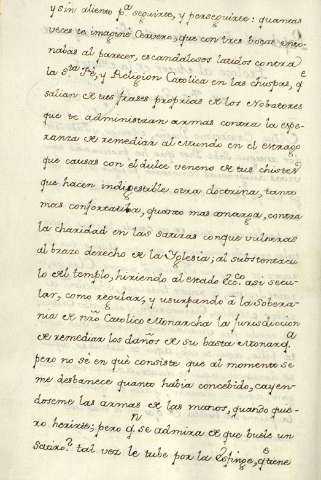 y sin aliento pa. seguirte, y perseguirte: quantas
veces te imaginè Cervero, que con tres bocas ento-
nabas al parecer, escandalosos latidos contra
la Sta. Fé, y Religion Catolica en las chispas, qe
salian de tus frases proprias de los Nobatores
que te administran armas contra la espe-
ranza de remediar al Mundo en el estrago
que causas con el dulce veneno de tus chistes
que hacen indigestible otra doctrina, tanto
mas confortatiba, quanto mas amarga, contra
la charidad en las satiras con que vulneras
al brazo derecho de la Yglesia; al substentacu-
lo del templo, hiriendo al estado Ecco. asi secu-
lar, como regular, y usurpando à la Sobera-
nia de nro Catolico Monarcha la jurisdiccion
de remediar los daños de su basta Monarqa.
pero no sé en què consiste que al momento se
me desbanece quanto habia concebido, cayen-
doseme las armas de las manos, quando quie-
ro herirte; pero qn se admira de que buele un
Satiro? tal vez le tube por la Esfinge, qe tiene